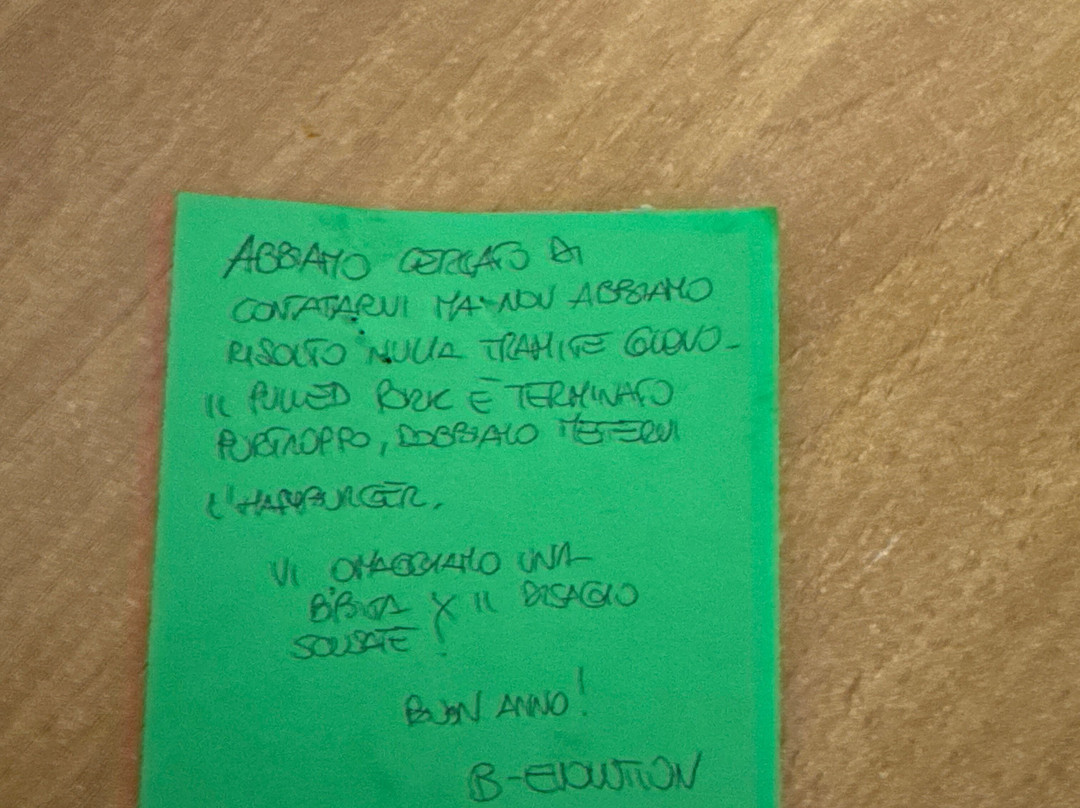 ABBIAMO CERCATO DI
CONTATARVI MA NON ABBIAMO
RISOLTO NULLA TRAMITE GLOVO-
IL PULLED PORK È TERMINATO
PURTROPPO, DOBBIAMO METTERVI
L'HAMBURGER.
VI OMAGGIAMO UNA
BIBITA X IL DISAGIO
SCUSATE!
BUON ANNO!
B-EVOLUTION